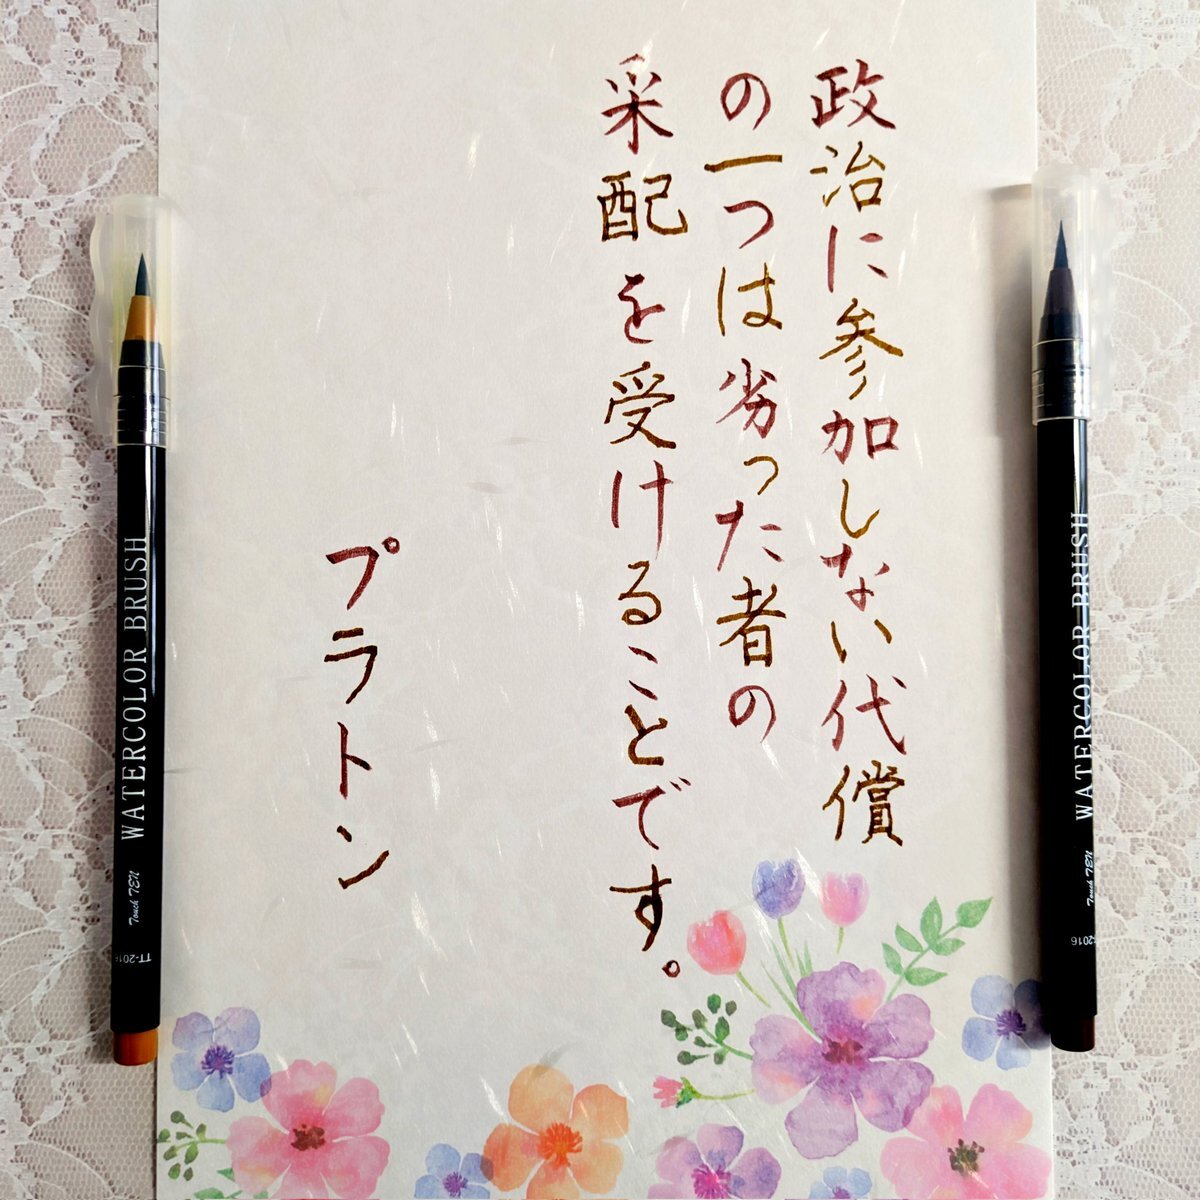 政治に参加しない代償
の一つは劣った者の
采配を受けることです。
プラトン
WATERCOLOR BRUSH
Touch TEN
TT-2016
WATERCOLOR BRUSH
Touch TEN
-2016